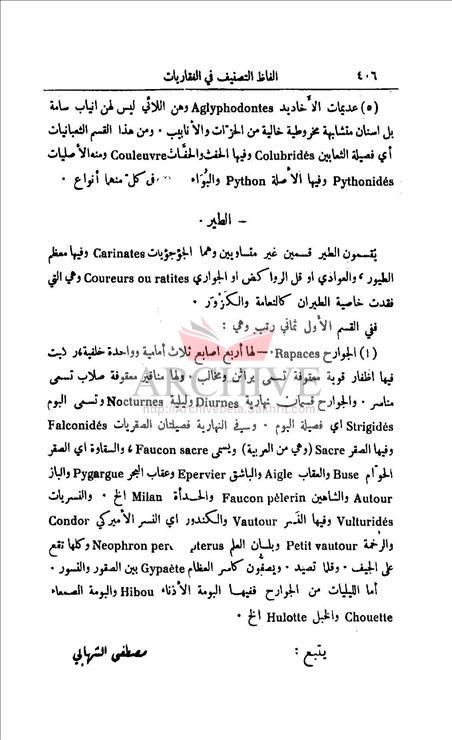 ٤٠٦ الفاظ التصنيف في الفقاريات
(٥) عديمات الأخاديد Aglyphodontes وهن اللائي ليس لهن انياب سامة
بل اسنان متشابهة مخروطية خالية من الحزات والأنابيب ٠ ومن هذا القسم الثعبانيات
أي فصيلة الثعابين Colubridés وفيها الحفث والحفّاث Couleuvre ومنه الأصليات
Pythonidés وفيها الأصلة Python والبُوَاء في كل منهما أنواع ٠
– الطير ٠
يُقسمون الطير قسمين غير متساويين وهما الجؤجؤيات Carinates وفيها معظم
الطيور ، والعوادي او قل الرواكض او الجواري Coureurs ou ratites وهي التي
فقدت خاصية الطيران كالنعامة والكَزْوَر ٠
ففي القسم الأول ثماني رتب وهي :
(١) الجوارح Rapaces ٠ — لها أربع اصابع ثلاث أمامية وواحدة خلفية، ركبت
فيها اظفار قوية معقوفة تسمى براثن ومخالب ٠ ولها مناقير معقوفة صلاب تسمى
مناسر ٠ والجوارح قسمان نهارية Diurnes وليلية Nocturnes وتسمى البوم
Strigidés اي فصيلة البوم ٠ وفي النهارية فصيلتان الصقريات Falconidés
وفيها الصقر Sacre (وهي من العربية) ويسمى Faucon sacre ، والسقاوة اي الصقر
الحوّام Buse والعقاب Aigle والباشق Epervier وعقاب البحر Pygargue والباز
Autour والشاهين Faucon pèlerin والحدأة Milan الخ ٠ والنسريات
Vulturidés وفيها النسر Vautour والكندور اي النسر الأميركي Condor
والرخمة Petit vautour وبلسان العلم Neophron per pterus وكلها تقع
على الجيف ٠ وقلما تصيد ٠ ويصفّون كاسر العظام Gypaète بين الصقور والنسور ٠
أما الليليات من الجوارح ففيها البومة الأذناء Hibou والبومة الصمعاء
Chouette والخبل Hulotte الخ ٠
يتبع : مصطفى الشهابي
ARCHIVE
http://Archivebeta.Sakhrit.com